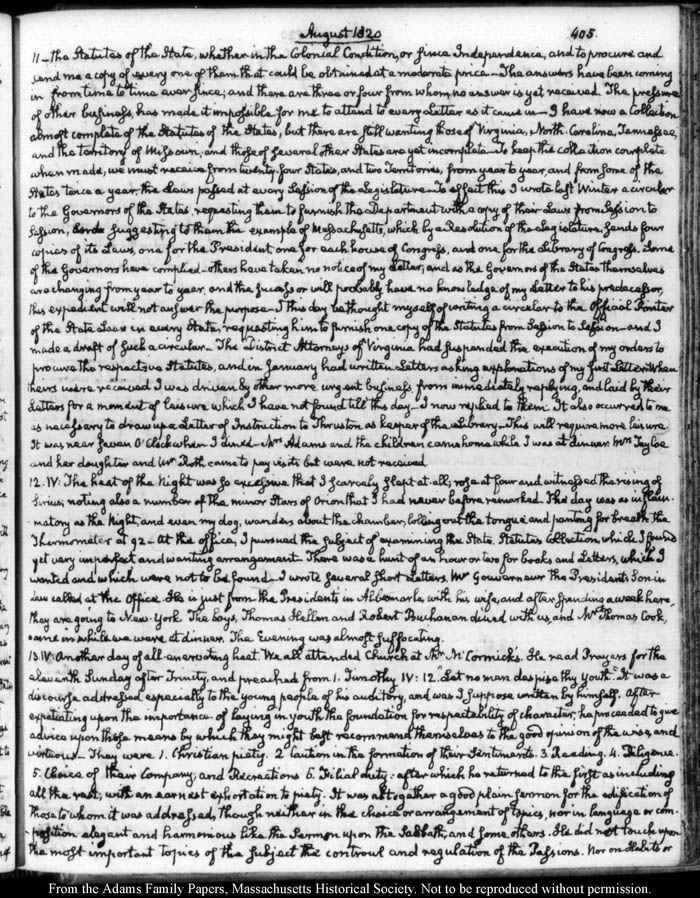 August 1820
405.
11 – the Statutes of the State, whether in the Colonial Condition, or since Independence, and to procure and
send me a copy of every one of them that could be obtained at a moderate price – The answers have been coming
in from time to time ever since; and there are three or four from whom no answer is yet received. The pressure
of other business, has made it impossible for me to attend to every Letter as it came in – I have now a Collection
almost complete of the Statutes of the States, but there are still wanting those of Virginia, North-Carolina, Tennessee,
and the territory of Missouri, and those of several other States are yet incomplete – To keep this collection complete
when made, we must receive from twenty-four States, and two Territories, from year to year, and from some of the
States twice a year, the Laws passed at every Session of the Legislature – To effect this I wrote last Winter a circular
to the Governors of the States, requesting them to furnish the Department with a copy of their Laws from Session to
Session, suggesting to them the example of Massachusetts, which by a Resolution of the Legislature, sends four
copies of its Laws, one for the President one for each house of Congress, and one for the Library of Congress. Some
of the Governors have complied – others have taken no notice of my Letter; and as the Governors of the States themselves
are changing from year to year, and the successor will probably have no knowledge of my Letter to his predecessor,
this expedient will not answer the purpose – I this day bethought myself of writing a circular to the Official Printer
of the State Laws in every State, requesting him to furnish one copy of the Statutes from Session to Session – and I
made a draft of such a circular – The District Attorneys of Virginia had suspended the execution of my orders to
procure the respective Statutes, and in January had written Letters asking explanations of my first Letter. When
theirs were received I was driven by other more urgent business from immediately replying, and laid by their
Letters for a moment of leisure which I have not found till this day – I now replied to them. It also occurred to me
as necessary to draw up a Letter of Instruction to Thruston as keeper of the Library – This will require more leisure.
It was near Seven O'Clock when I dined – Mrs Adams and the children came home while I was at dinner. Mrs Tayloe
and her daughter and Mr Roth came to pay visits but were not received.
12. IV: The heat of the Night was so excessive that I scarcely slept at all; rose at four and witnessed the rising of
Sirius; noting also a number of the minor Stars of Orion that I had never before remarked. The day was as inflam-
matory as the Night, and even my dog, wanders about the chamber, lolling out the tongue and panting for breath. the
Thermometer at 92 – At the office, I pursued the subject of examining the State Statutes Collection, which I found
yet very imperfect and wanting arrangement – There was a hunt of an hour or two for books and Letters, which I
wanted and which were not to be found – I wrote several short Letters. Mr Gouverneur the President's Son in
law called at the Office. He is just from the President's in Albemarle, with his wife, and after spending a week here,
they are going to New-York. The boys, Thomas Hellen and Robert Buchanan dined with us and Mr Thomas Cook,
came in while we were at dinner. The Evening was almost suffocating.
13. IV. Another day of all-enervating heat. We all attended Church at Mr McCormick's. He read Prayers for the
eleventh Sunday after Trinity, and preached from 1. Timothy IV: 12. "Let no man despise thy Youth." It was a
discourse addressed especially to the young people of his auditory, and was I suppose written by himself. After
expatiating upon the importance of laying in youth the foundation for respectability of character, he proceeded to give
advice upon those means by which they might best recommend themselves to the good opinion of the wise and
virtuous – They were 1. Christian piety. 2 Caution in the formation of their Sentiments. 3. Reading. 4. Diligence.
5. Choice of their Company, and Recreations 6. Filial duty: after which he returned to the first as including
all the rest, with an earnest exhortation to piety. It was altogether a good, plain Sermon for the edification of
those to whom it was addressed, though neither in the choice or arrangement of topics, nor in language or com-
position elegant and harmonious like the Sermon upon the Sabbath, and some others. He did not touch upon
the most important topics of the subject the controul and regulation of the Passions. Nor on Habits or
From the Adams Family Papers, Massachusetts Historical Society. Not to be reproduced without permission.